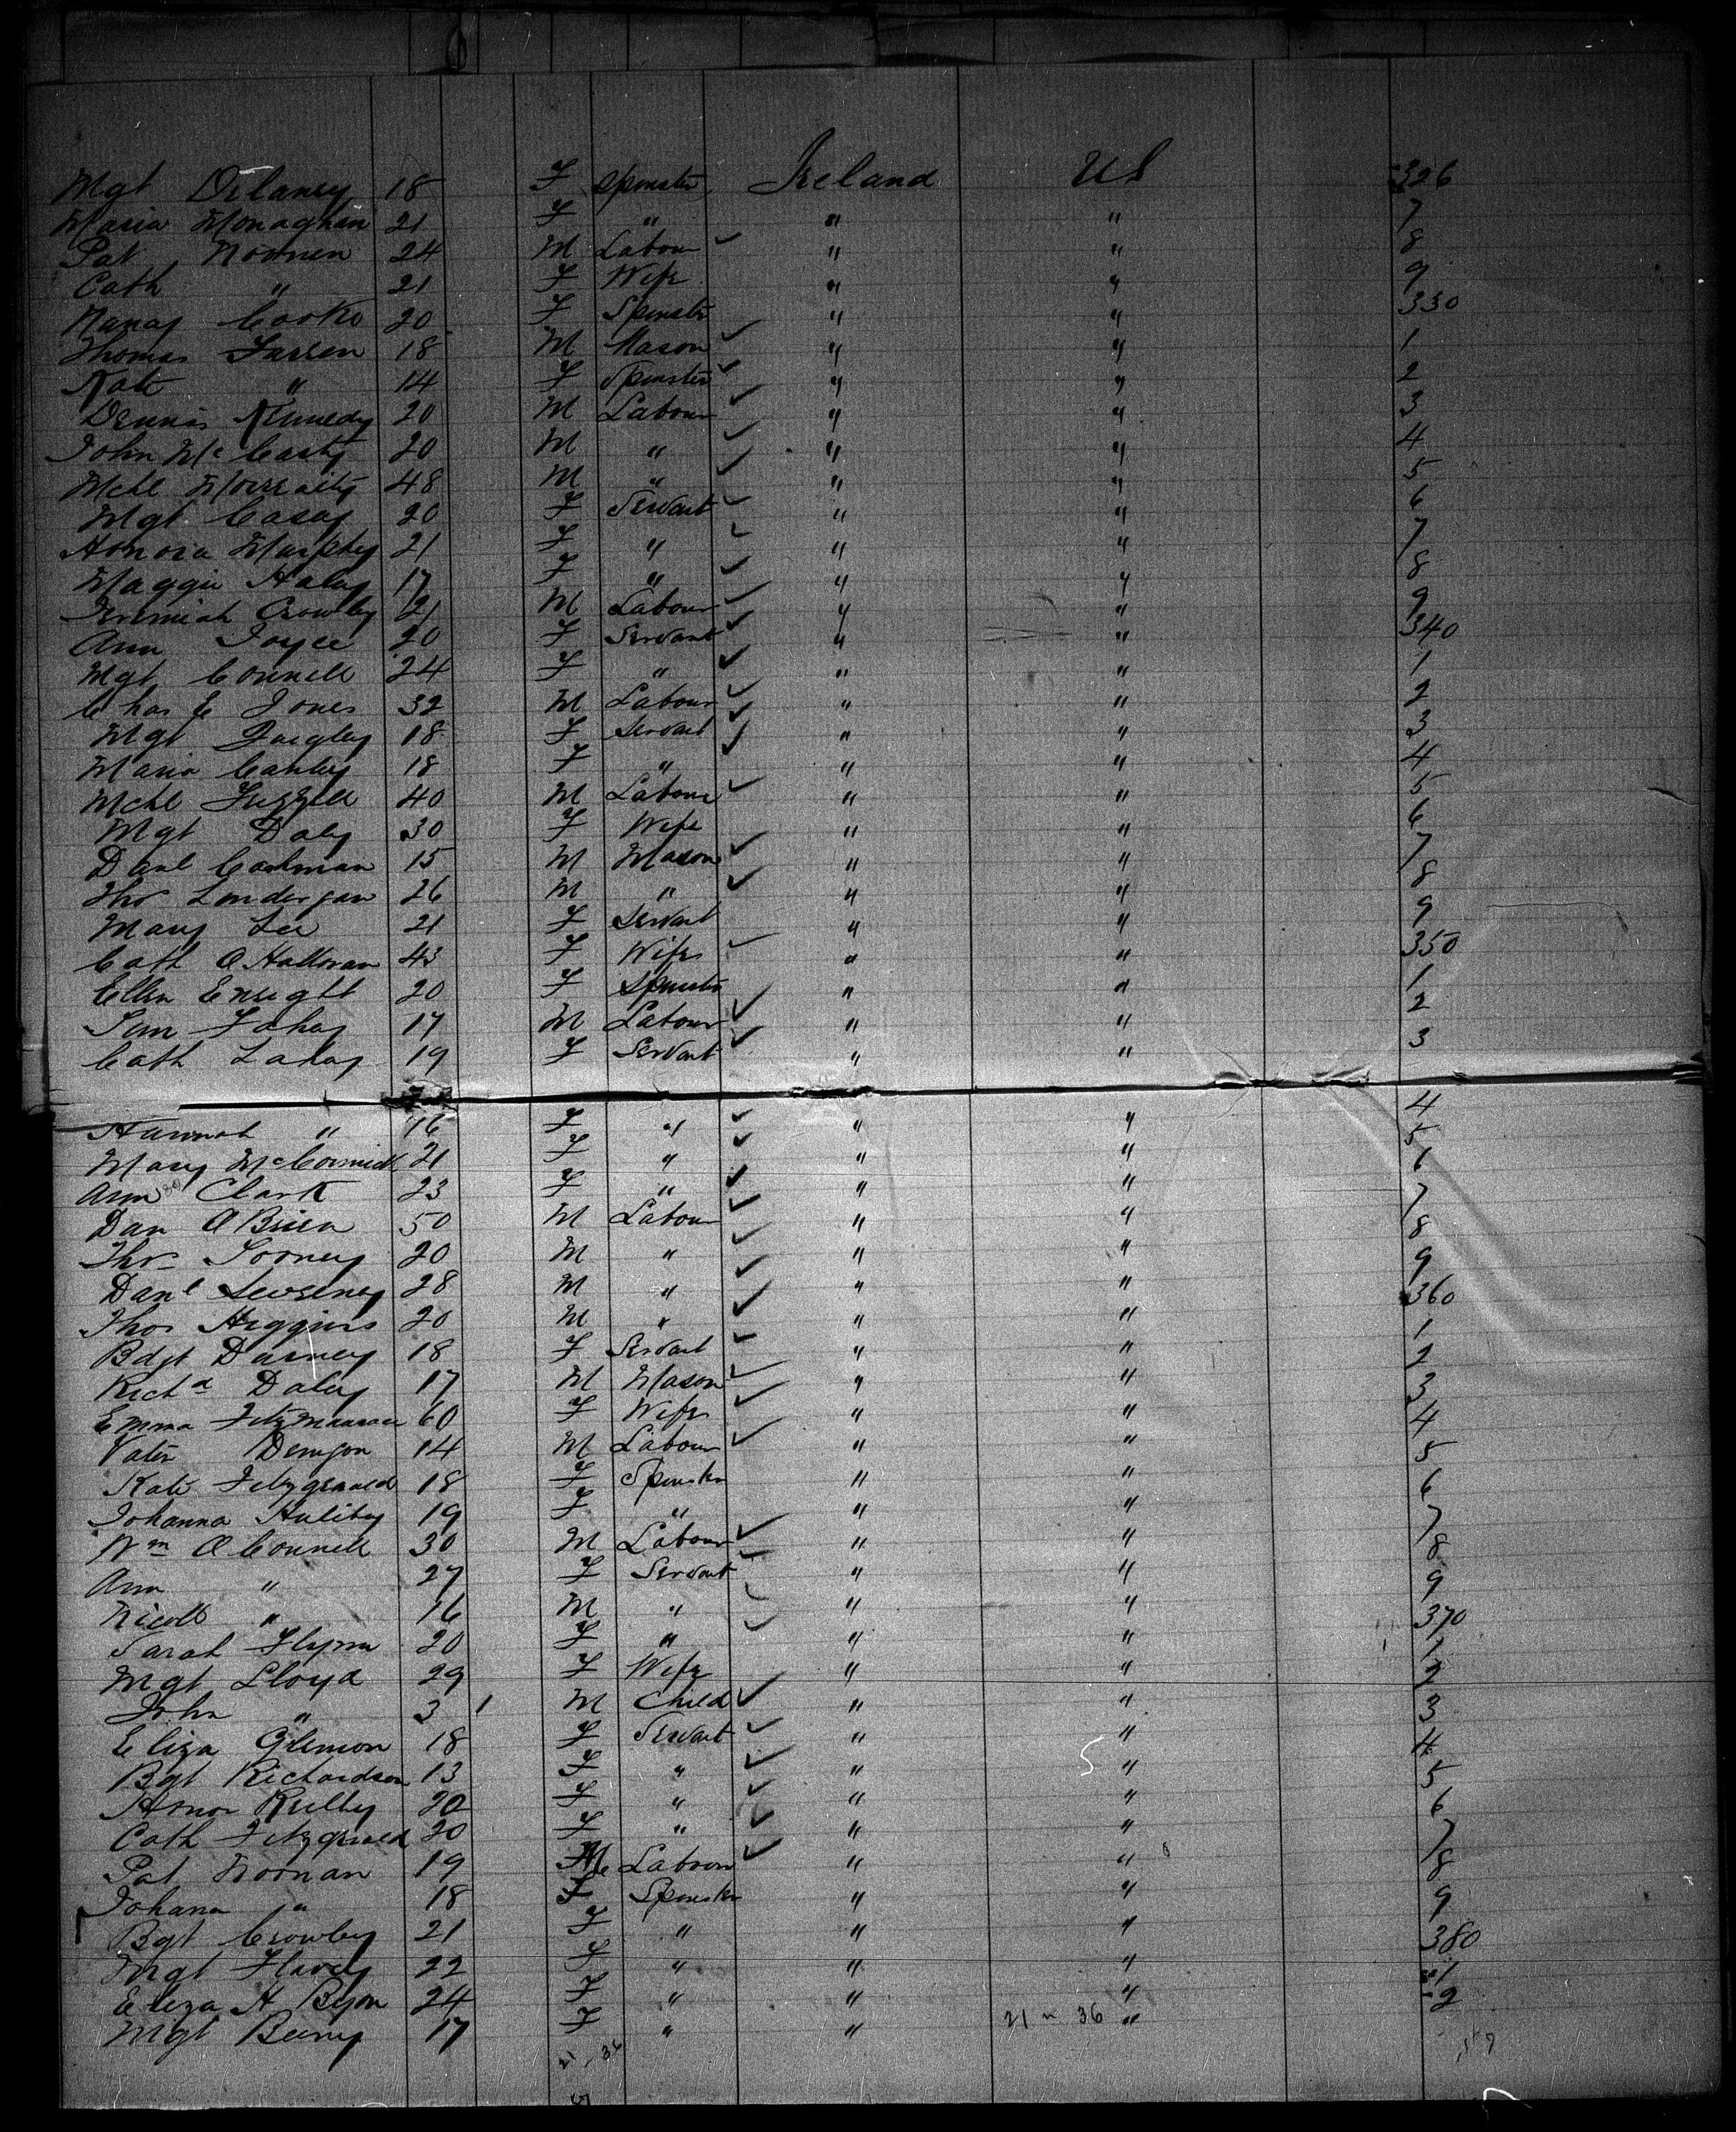 Mgt Delaney 18 F Spinster Ireland US 326
Maria Monaghan 21 F " " " 7
Pat Noonen 24 M Labour " " 8
Cath " 21 F Wife " " 9
Nanay Cooke 20 F Spinster " " 330
Thomas 18 M Mason " " 1
Kate " 14 F Spinster " " 2
Dennis Kennedy 20 M Labour " " 3
John McCarty 20 M " " " 4
Mchl 48 M " " " 5
Mgt Casay 20 F Servant " " 6
Honora Murphy 21 F " " " 7
Maggie Haley 17 F " " " 8
Jeremiah Crowley 21 M Labour " " 9
Ann Joyce 20 F Servant " " 340
Mgt Connell 24 F " " " 1
Chas E Jones 32 M Labour " " 2
Mgt Quigley 18 F Servant " " 3
Maria Canley 18 F " " " 4
Mchl 40 M Labour " " 5
Mgt Daly 30 F Wife " " 6
Danl Cashman 15 M Mason " " 7
Thos Londergan 26 M " " " 8
Mary Lee 21 F Servant " " 9
Cath O Halloran 43 F Wife " " 350
Ellen Enright 20 F Spinster " " 1
Fahay 17 M Labour " " 2
Cath Lahay 19 F Servant " " 3
Hannah " 16 F " " " 4
Mary McCormick 21 F " " " 5
Ann Clark 23 F " " " 6
Dan O Brien 50 M Labour " " 7
Thos 20 M " " " 8
Danl Sweeney 28 M " " " 9
Thos Higgins 20 M " " " 360
Bdgt Darney 18 F Servant " " 1
Richd Daley 17 M Mason " " 2
Emma Fitzmaurice 60 F Wife " " 3
14 M Labour " " 4
Kate Fitzgerald 18 F Spinster " " 5
Johanna 19 F " " " 6
Wm O Connell 30 M Labour " " 7
Ann " 27 F Servant " " 8
Nicoll " 16 M " " " 9
Sarah Flynn 20 F " " " 370
Mgt Lloyd 29 F Wife " " 1
John " 3 1 M Child " " 2
Eliza 18 F Servant " " 3
Bgt Richardson 13 F " " 5 " 4
Honor 20 F " " " 5
Cath Fitzgerald 20 F " " " 6
Pat Noonan 19 M Labour " " 7
Johana " 18 F Spinster " " 8
Bgt Crowley 21 F " " " 9
Mgt 22 F " " " 380
Eliza A 24 F " " " 1
Mgt 17 F " " 21 " 36 " 2
21 36